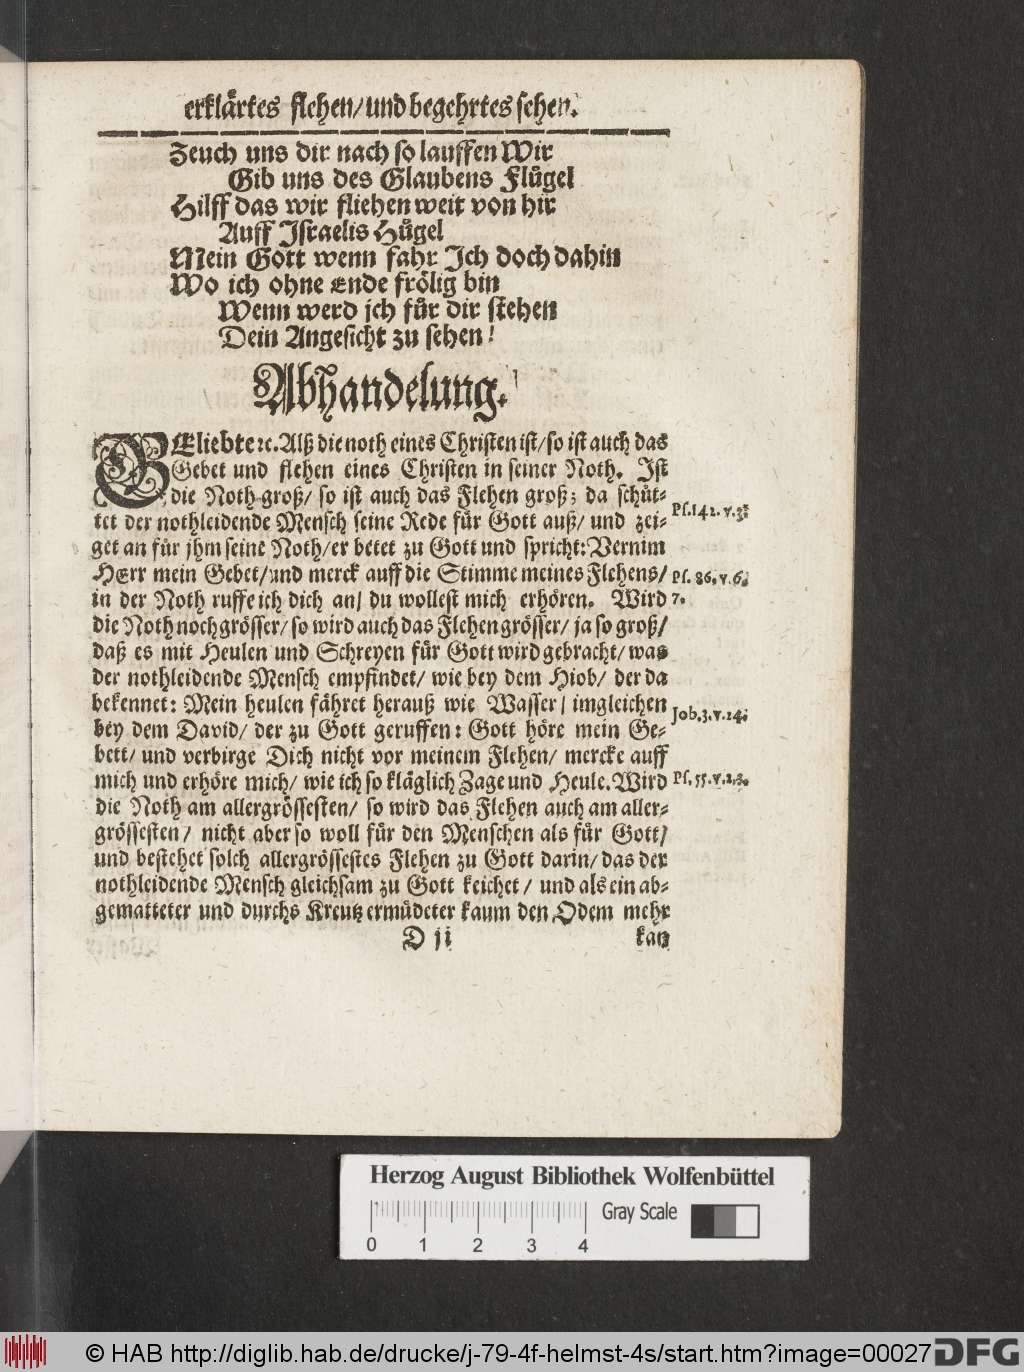 erklärtes flehen/ und begehrtes sehen.
Zeuch uns dir nach so lauffen Wir
Gib uns des Glaubens Flügel
Hilff das wir fliehen weit von hir
Auff Israelis Hügel
Mein Gott wenn fahr Ich doch dahin
Wo ich ohne Ende frölig bin
Wenn werd ich für dir stehen
Dein Angesicht zu sehen!
Abhandelung.
GEliebte ꝛc. Alß die noth eines Christen ist/ so ist auch das
Gebet und flehen eines Christen in seiner Noth. Ist
die Noth groß/ so ist auch das Flehen groß; da schüt-
tet der nothleidende Mensch seine Rede für Gott auß/ und zei-
get an für jhm seine Noth/ er betet zu Gott und spricht: Vernim
HErr mein Gebet/ und merck auff die Stimme meines Flehens/
in der Noth ruffe ich dich an/ du wollest mich erhören. Wird
die Noth noch grösser/ so wird auch das Flehen grösser/ ja so groß/
daß es mit Heulen und Schreyen für Gott wird gebracht/ was
der nothleidende Mensch empfindet/ wie bey dem Hiob/ der da
bekennet: Mein heulen fähret herauß wie Wasser/ imgleichen
bey dem David/ der zu Gott geruffen: Gott höre mein Ge-
bett/ und verbirge Dich nicht vor meinem Flehen/ mercke auff
mich und erhöre mich/ wie ich so kläglich Zage und Heule. Wird
die Noth am allergrössesten/ so wird das Flehen auch am aller-
grössesten/ nicht aber so woll für den Menschen als für Gott/
und bestehet solch allergrössestes Flehen zu Gott darin/ das der
nothleidende Mensch gleichsam zu Gott keichet/ und als ein ab-
gematteter und durchs Kreutz ermüdeter kaum den Odem mehr
D ij
kan
Ps. 142. v. 3.
Ps. 86. v. 6.
7.
Job. 3. v. 24.
Ps. 55. v. 2, 3.
Herzog August Bibliothek Wolfenbüttel
0 1 2 3 4
Gray Scale
© HAB http://diglib.hab.de/drucke/j-79-4f-helmst-4s/start.htm?image=00027
DFG